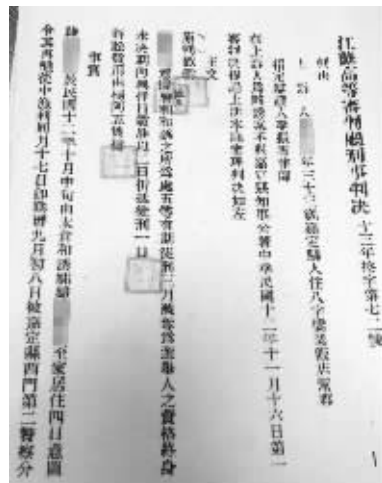 江蘇高等審判廳刑事判決 十三年終字第七二號
判決
上訴人 年三十六歲嘉定縣人住八字橋業飯店當灶
指定辯護人華振律師
右上訴人為略誘案不服嘉定縣知事公署中華民國十二年十一月十六日第一
審判決提起上訴本廳審理判決如左
主文
原判撤銷
和誘之所為處五等有期徒刑二月褫奪為選舉人之資格終身
未決期內羈押日數准以二日折抵徒刑一日
訟費用由 負擔
事實
緣 於民國十二年十月中旬由太倉和誘 至家居住四日意圖
令其再醮從中漁利同月十七日即舊曆九月初八日被嘉定縣西門第二警察分